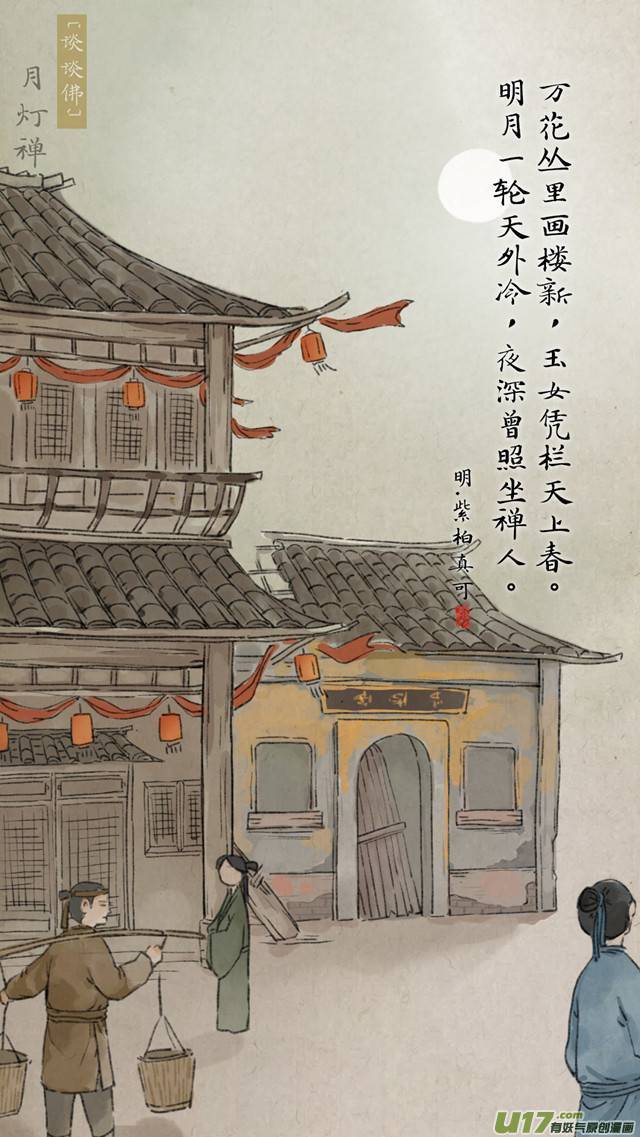 万花丛里画楼新，玉女凭栏天上春。
明月一轮天外冷，夜深曾照坐禅人。
明·紫柏真可
〔谈谈佛〕
月灯禅
U17.com
有妖气原创漫画